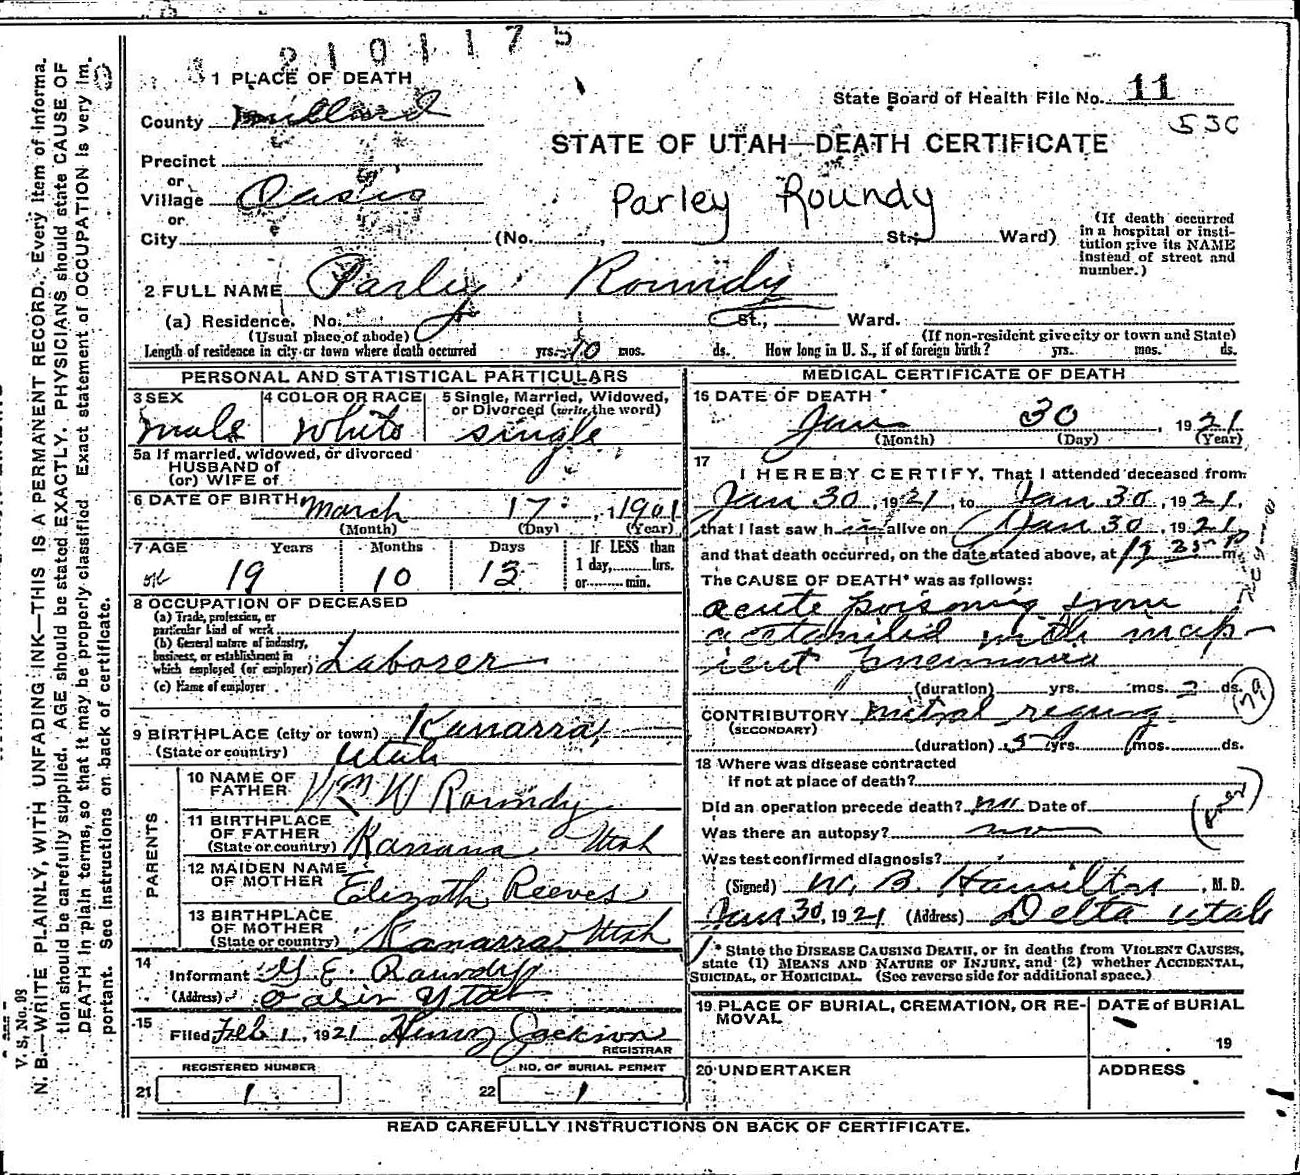 2101175
1 PLACE OF DEATH
State Board of Health File No. 11
County Millard
530
STATE OF UTAH—DEATH CERTIFICATE
Precinct
or
Village Oasis
Parley Roundy
or
City (No. , St.; Ward)
(If death occurred in a hospital or insti-
tution give its NAME
instead of street and
number.)
2 FULL NAME Parley Roundy
(a) Residence. No. St., Ward.
(Usual place of abode) (If non-resident give city or town and State)
Length of residence in city or town where death occurred yrs. 10 mos. ds. How long in U. S., if of foreign birth? yrs. mos. ds.
PERSONAL AND STATISTICAL PARTICULARS
3 SEX male
4 COLOR OR RACE White
5 Single, Married, Widowed,
or Divorced (write the word)
single
5a If married, widowed, or divorced
HUSBAND of
(or) WIFE of
6 DATE OF BIRTH March 17, 1901
(Month) (Day) (Year)
7 AGE Years Months Days If LESS than
1 day,......hrs.
or......min.
19 10 13
8 OCCUPATION OF DECEASED
(a) Trade, profession, or
particular kind of work
(b) General nature of industry,
business, or establishment in
which employed (or employer) Laborer
(c) Name of employer
9 BIRTHPLACE (city or town) Kanarra,
(State or country) Utah
PARENTS
10 NAME OF
FATHER Wm W Roundy
11 BIRTHPLACE
OF FATHER
(State or country) Kanarra Utah
12 MAIDEN NAME
OF MOTHER Elizath Reeves
13 BIRTHPLACE
OF MOTHER
(State or country) Kanarra Utah
14
Informant G. E. Roundy
(Address) Oasis Utah
15
Filed Feb 1, 1921 Henry Jackson
REGISTRAR
REGISTERED NUMBER
21 1
NO. OF BURIAL PERMIT
22 1
MEDICAL CERTIFICATE OF DEATH
16 DATE OF DEATH
Jan 30, 1921
(Month) (Day) (Year)
17
I HEREBY CERTIFY, That I attended deceased from
Jan 30, 1921, to Jan 30, 1921,
that I last saw h im alive on Jan 30, 1921,
and that death occurred, on the date stated above, at m.
The CAUSE OF DEATH* was as follows:
acute poisoning from
acetanilid with incip-
ient pneumonia
(duration) yrs. mos. 2 ds.
179
CONTRIBUTORY mitral regurg.
(SECONDARY)
(duration) 5 yrs. mos. ds.
18 Where was disease contracted
if not at place of death?
Did an operation precede death? no Date of
Was there an autopsy? no
Was test confirmed diagnosis?
(Signed) W. B. Hamilton, M. D.
Jan 30, 1921 (Address) Delta Utah
* State the DISEASE CAUSING DEATH, or in deaths from VIOLENT CAUSES,
state (1) MEANS AND NATURE OF INJURY, and (2) whether ACCIDENTAL,
SUICIDAL, or HOMICIDAL. (See reverse side for additional space.)
19 PLACE OF BURIAL, CREMATION, OR RE-
MOVAL
DATE of BURIAL
19
20 UNDERTAKER
ADDRESS
READ CAREFULLY INSTRUCTIONS ON BACK OF CERTIFICATE.
V. S. No. 93
N. B.—WRITE PLAINLY, WITH UNFADING INK—THIS IS A PERMANENT RECORD. Every item of informa-
tion should be carefully supplied. AGE should be stated EXACTLY. PHYSICIANS should state CAUSE OF
DEATH in plain terms, so that it may be properly classified. Exact statement of OCCUPATION is very im-
portant. See instructions on back of certificate.